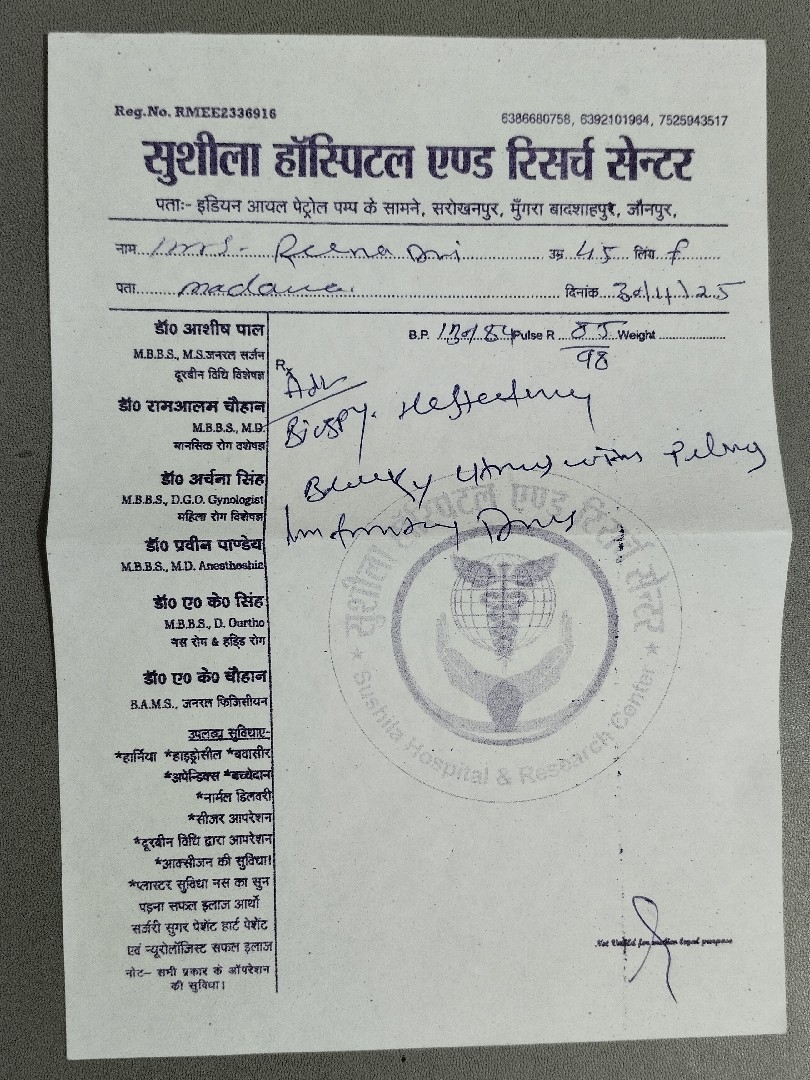 Reg.No. RMEE2336916
6386680758, 6392101964, 7525943517
सुशीला हॉस्पिटल एण्ड रिसर्च सेन्टर
पताः- इंडियन आयल पेट्रोल पम्प के सामने, सरोखनपुर, मुँगरा बादशाहपुर, जौनपुर,
नाम Mrs. Reena उम्र 45 लिंग f
पता दिनांक 30/4/25
डॉ0 आशीष पाल
M.B.B.S., M.S.जनरल सर्जन
दूरबीन विधि विशेषज्ञ
डॉ0 रामआलम चौहान
M.B.B.S., M.D.
मानसिक रोग वशेषज्ञ
डॉ0 अर्चना सिंह
M.B.B.S., D.G.O. Gynologist
महिला रोग विशेषज्ञ
डॉ0 प्रवीन पाण्डेय
M.B.B.S., M.D. Anestheshic
डॉ0 ए0 के0 सिंह
M.B.B.S., D. Ourtho
नस रोग & हड्डि रोग
डॉ0 ए0 के0 चौहान
B.A.M.S., जनरल फिजिसीयन
उपलब्ध सुविधाए-
*हार्निया *हाइड्रोसील *बवासीर
*अपेन्डिक्स *बच्चेदानी
*नार्मल डिलवरी
*सीजर आपरेशन
*दूरबीन विधि द्वारा आपरेशन
*आक्सीजन की सुविधा।
*प्लास्टर सुविधा नस का सुन
पड़ना सफल इलाज आर्थो
सर्जरी सुगर पेशेंट हार्ट पेशेंट
एवं न्यूरोलॉजिस्ट सफल इलाज
नोट– सभी प्रकार के ऑपरेशन
की सुविधा।
B.P. /84 Pulse R 85 Weight
98
Rx
Adv
Biospy.
Bulky with
सुशीला हॉस्पिटल एण्ड रिसर्च सेन्टर
Sushila Hospital & Research Center
Not Valid for medico legal purpose